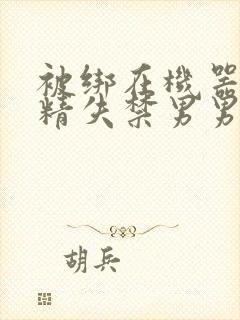 被绑在机器
精失禁男男
胡兵